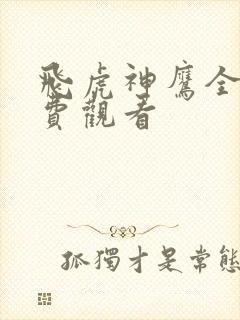 飛虎神鷹全
費觀看
孤獨才是常態